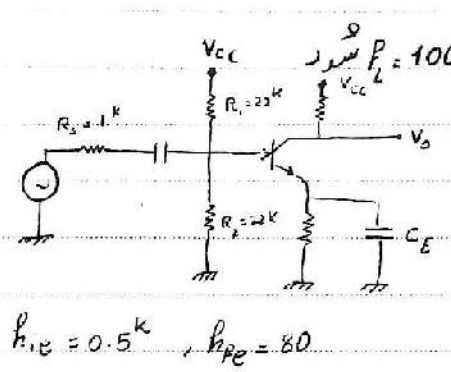 شود f_L = 100
Vcc
Vcc
R₁=22ᵏ
R_s=1ᵏ
V₀
R₂=22ᵏ
C_E
h_ie = 0.5ᵏ , h_fe = 80